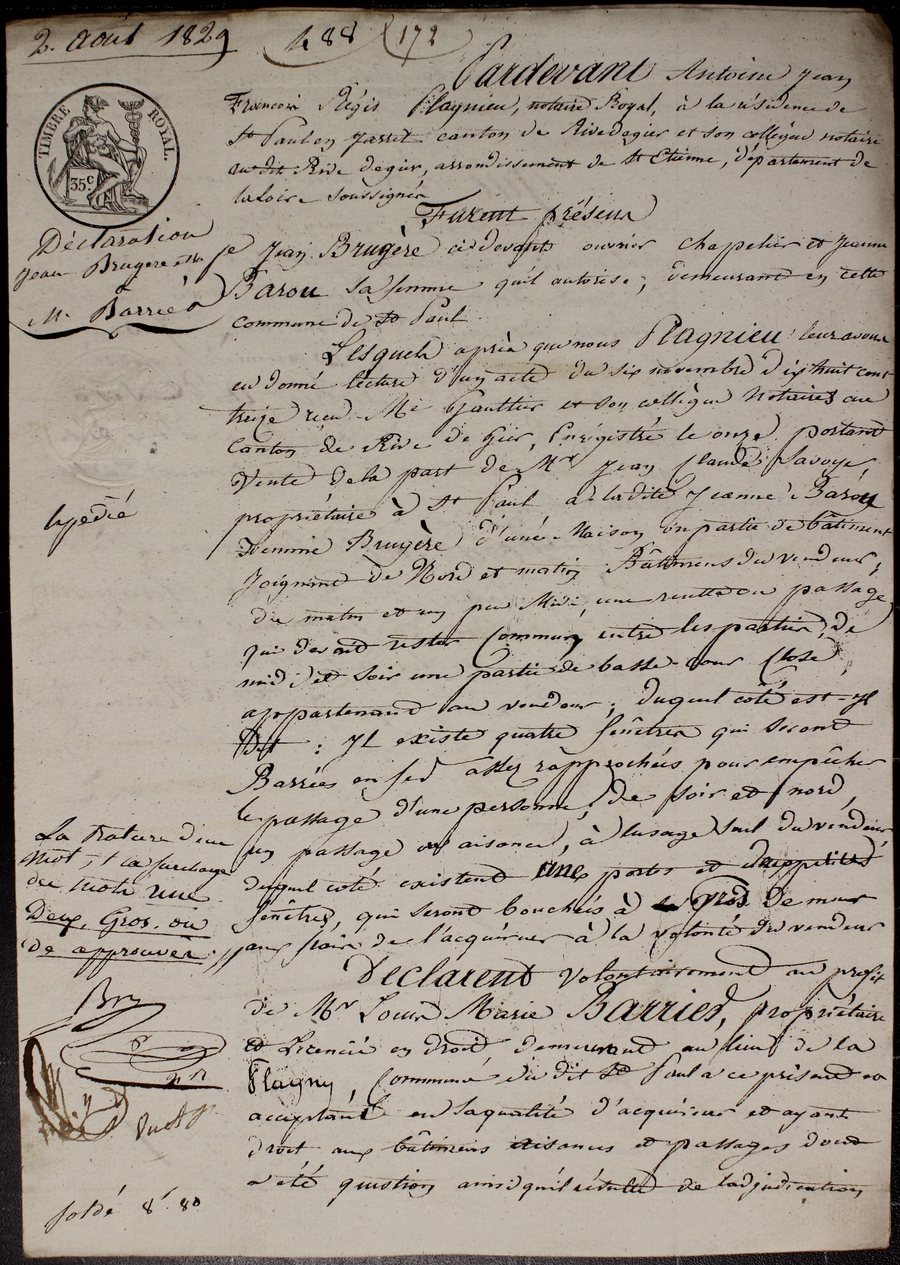 2. août 1829 488 172
Pardevant Antoine Jean
François Régis Plagnieu, notaire Royal, à la résidence de
St Paul en Jarret canton de Rivedegier et son collègue notaire
audit Rive de gier, arrondissement de St Etienne, département de
la Loire soussignés
TIMBRE ROYAL.
35c
Furent présens
Déclaration
Jean Brugere
Mr Barrié
Sr Jean Brugère ci devant ouvrier chapelier et Jeanne
Barou sa femme qu'il autorise, demeurant en cette
commune de St Paul
Lesquels après que nous Plagnieu leur avons
eu donné lecture d'un acte du six novembre dix huit cent
treize reçu Me Gaultier et son collègue Notaires au
Canton de Rive de Gier, Enrégistré le onze portant
Vente de la part de Mr Jean Claude Savoye,
propriétaire à St Paul à ladite Jeanne Barou
expédié
femme Brugère d'une Maison ou partie de bâtiment
Joignant de Nord et matin Bâtimens du vendeur,
du matin et un peu Midi, une ou passage
qui devoit rester Commun entre les parties, de
midi et soir une partie de basse-cour Close
appartenant au vendeur ; duquel coté est-il
Dit : Il existe quatre fenêtres qui seront
Barrées en fer assez rapprochés pour empêcher
le passage d'une personne, De soir et nord,
un passage ou aisance, à l'usage seul du vendeur
duquel coté existent une portes et deux petites
fenêtres, qui seront bouchés à gros De mur
aux frais de l'acquéreur à la volonté du vendeur
La rature d'un
mot et la surcharge
des mots une
Deux, Gros. ou
de approuvés
Déclarent volontairement au profit
de Mr Louis Marie Barrier, propriétaire
et Licencié en droit, demeurant au lieu de la
Plagny, Commune du dit St Paul à ce présent et
acceptant en sa qualité d'acquéreur et ayant
droit aux bâtimens aisances et passages dont
a été question ainsi qu'il résulte de l'adjudication
Soldé 8f 80